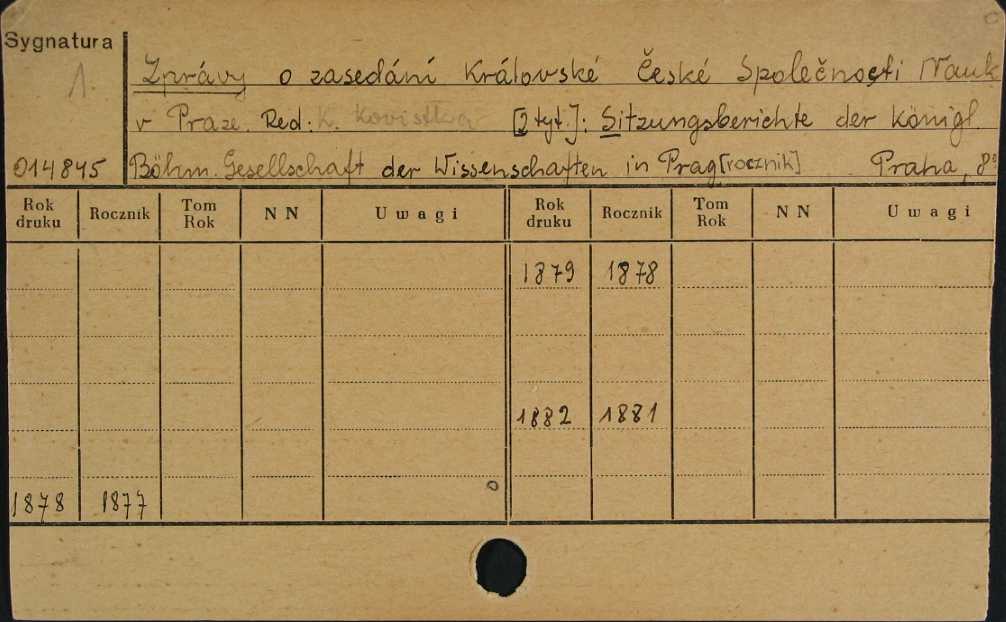 Sygnatura
1.
Zprávy o zasedání Královské České Společnosti Nauk
v Praze. Red: K. [2 tyt.]: Sitzungsberichte der königl.
014845 Böhm. Gesellschaft der Wissenschaften in Prag [rocznik] Praha, 8°
Rok druku Rocznik Tom Rok N N Uwagi Rok druku Rocznik Tom Rok N N Uwagi
1879 1878
1882 1881
1878 1877